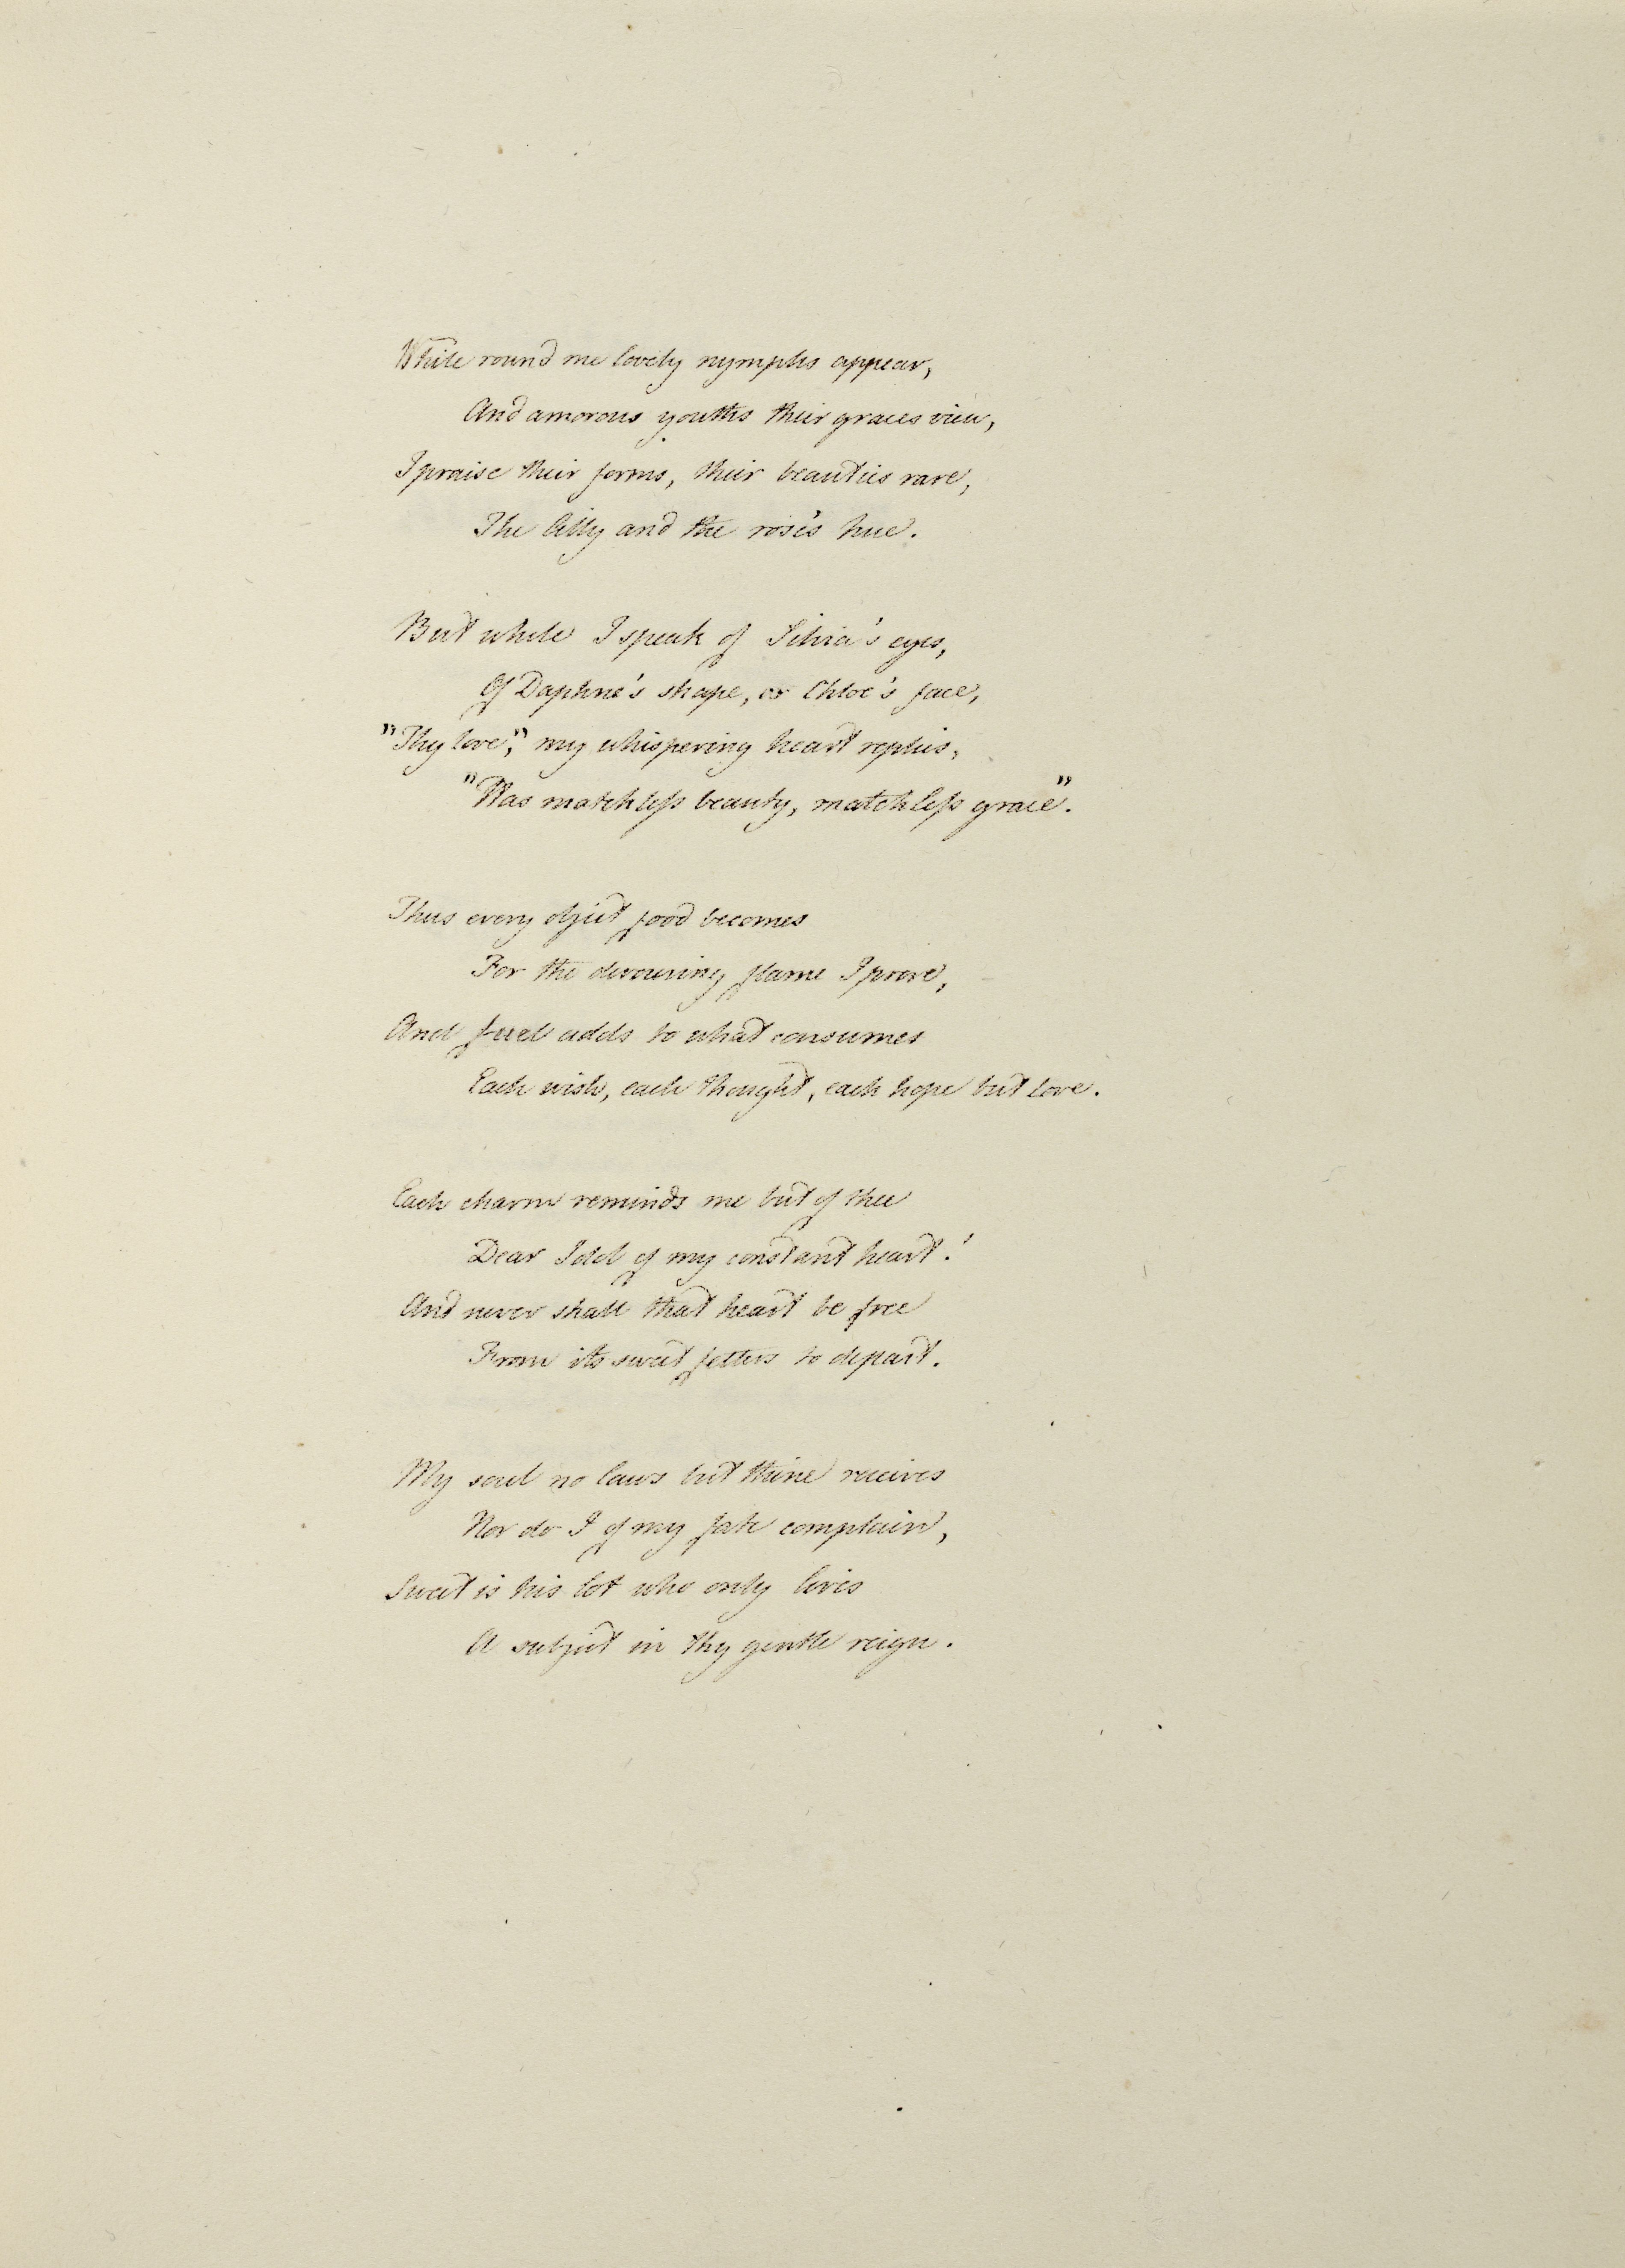 While round me lovely nymphs appear,
And amorous youths their graces view,
I praise their forms, their beauties rare,
The lilly and the rose's hue.
But while I speak of Silvia's eyes,
Of Daphne's shape, or Chloe's face,
"Thy love," my whispering heart replies,
"Has matchless beauty, matchless grace".
Thus every object food becomes
For the devouring flame I prove,
And fuel adds to what consumes
Each wish, each thought, each hope but love.
Each charm reminds me but of thee
Dear Idol of my constant heart!
And never shall that heart be free
From its sweet fetters to depart.
My soul no laws but thine receives
Nor do I of my fate complain,
Sweet is his lot who only lives
A subject in thy gentle reign.